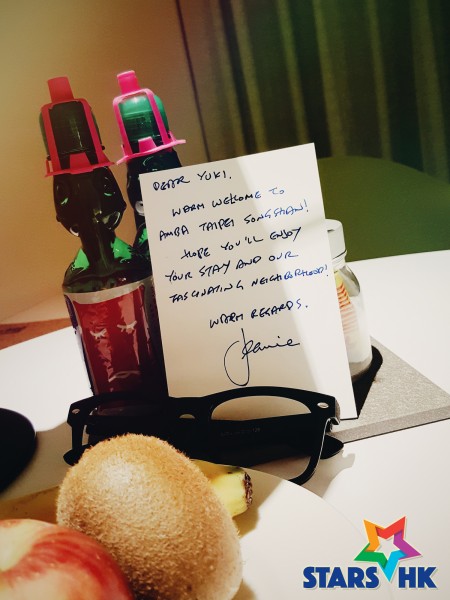 DEAR YUKI.
WARM WELCOME TO
AMBA TAIPEI SONGSHAN!
HOPE YOU'LL ENJOY
YOUR STAY AND OUR
FASCINATING NEIGHBORHOOD!
WARM REGARDS.
Jamie
STARS HK